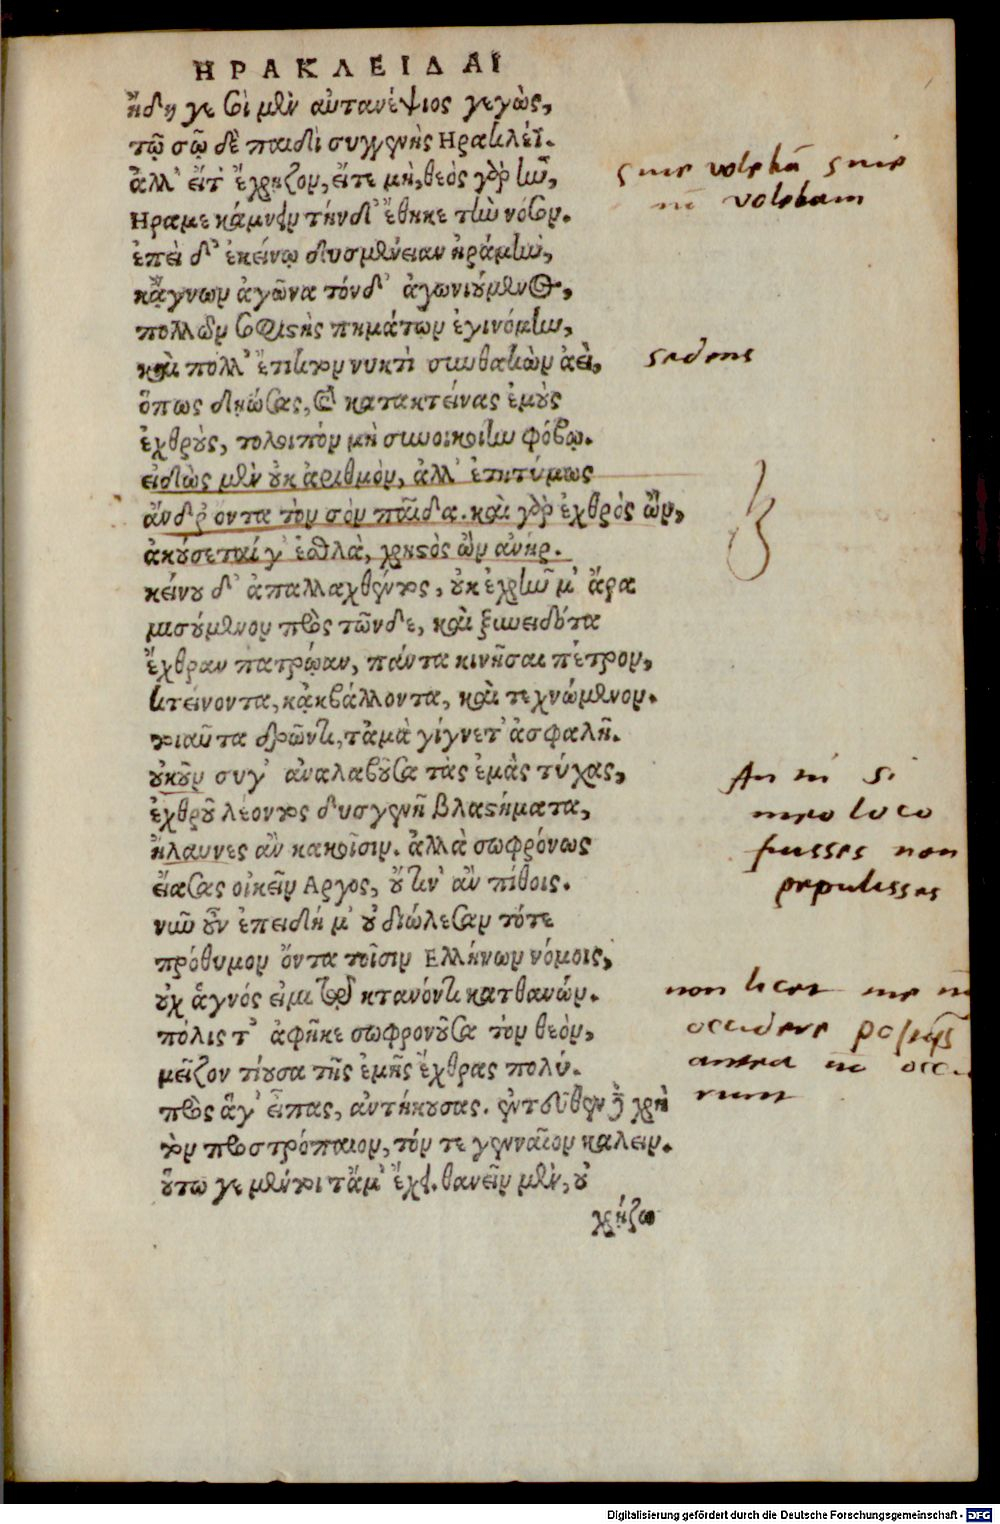 ΗΡΑΚΛΕΙΔΑΙ
ᾔδη γε σοὶ μὲν αὐτανέψιος γεγὼς,
τῷ σῷ δὲ παιδὶ συγγενὴς Ηρακλέϊ.
ἀλλ' εἴτ' ἔχρηζον, εἴτε μὴ, θεὸς γὰρ ἦν,
Ηρα με κάμνειν τήνδ' ἔθηκε τὴν νόσον.
ἐπεὶ δ' ἐκείνῳ δυσμένειαν ἠράμην,
κᾄγνων ἀγῶνα τόνδ' ἀγωνιούμενος,
πολλῶν σοφιστὴς πημάτων ἐγινόμην,
καὶ πόλλ' ἔτικτον νυκτὶ συνθακῶν ἀεὶ,
ὅπως διώσας, καὶ κατακτείνας ἐμοὺς
ἐχθροὺς, τολοιπὸν μὴ συνοικοίην φόβῳ.
εἰδὼς μὲν οὐκ ἀριθμὸν, ἀλλ' ἐτητύμως
ἄνδρ' ὄντα τὸν σὸν παῖδα. καὶ γὰρ ἐχθρὸς ὢν,
ἀκούσεταί γ' ἐσθλὰ, χρηστὸς ὢν ἀνήρ.
κείνου δ' ἀπαλλαχθέντος, οὐκ ἐχρῆν μ' ἄρα
μισούμενον πρὸς τῶνδε, καὶ ξυνειδότα
ἔχθραν πατρῴαν, πάντα κινῆσαι πέτρον,
κτείνοντα, κᾀκβάλλοντα, καὶ τεχνώμενον.
τοιαῦτα δρῶντι, τἀμὰ γίγνετ' ἀσφαλῆ.
οὐκοῦν συγ' ἀναλαβοῦσα τὰς ἐμὰς τύχας,
ἐχθροῦ λέοντος δυσγενῆ βλαστήματα,
ἤλαυνες ἂν κακοῖσιν. ἀλλὰ σωφρόνως
εἴασας οἰκεῖν Αργος, οὔτιν' ἂν πίθοις.
νῦν οὖν ἐπειδή μ' οὐ διώλεσαν τότε
πρόθυμον ὄντα τοῖσιν Ελλήνων νόμοις,
οὐχ ἁγνός εἰμι τῷ κτανόντι κατθανών.
πόλις τ' ἀφῆκε σωφρονοῦσα τὸν θεὸν,
μεῖζον τίουσα τῆς ἐμῆς ἔχθρας πολύ.
πρὸς ἅγ' εἶπας, ἀντήκουσας. ἐντεῦθεν δὲ χρὴ
τὸν προστρόπαιον, τόν τε γενναῖον καλεῖν.
οὕτω γε μέντοι τἄμ' ἔχει. θανεῖν μὲν, οὐ
χρῄζω
siue volebā siue
nō volebam
sedens
An nō si
meo loco
fuisses non
pepulisses
non licet me
occidere
antea nō
Digitalisierung gefördert durch die Deutsche Forschungsgemeinschaft - DFG